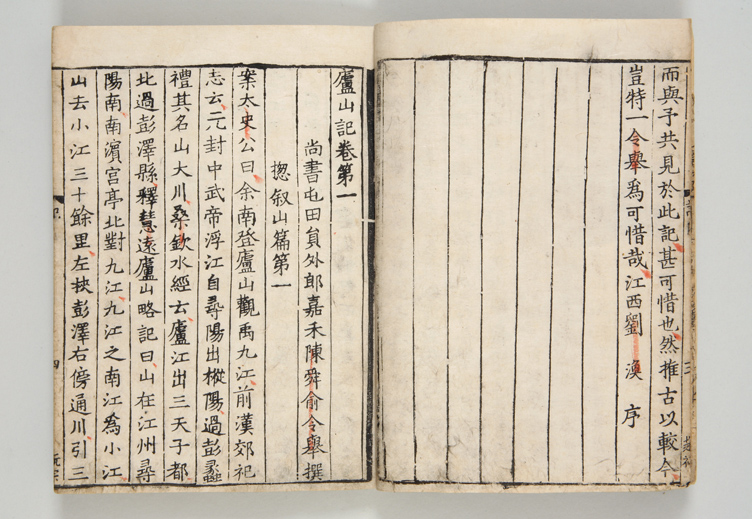 而與予共見於此記甚可惜也然推古以較今
豈特一令舉爲可惜哉江西劉 渙 序
廬山記卷第一
尚書屯田員外郎嘉禾陳舜俞令舉撰
揔叙山篇第一
案太史公曰余南登廬山觀禹九江前漢郊祀
志云元封中武帝浮江自尋陽出樅陽過彭蠡
禮其名山大川桑欽水經云廬江出三天子都
北過彭澤縣釋慧遠廬山略記曰山在江州尋
陽南南濵宫亭北對九江九江之南江爲小江
山去小江三十餘里左挾彭澤右傍通川引三